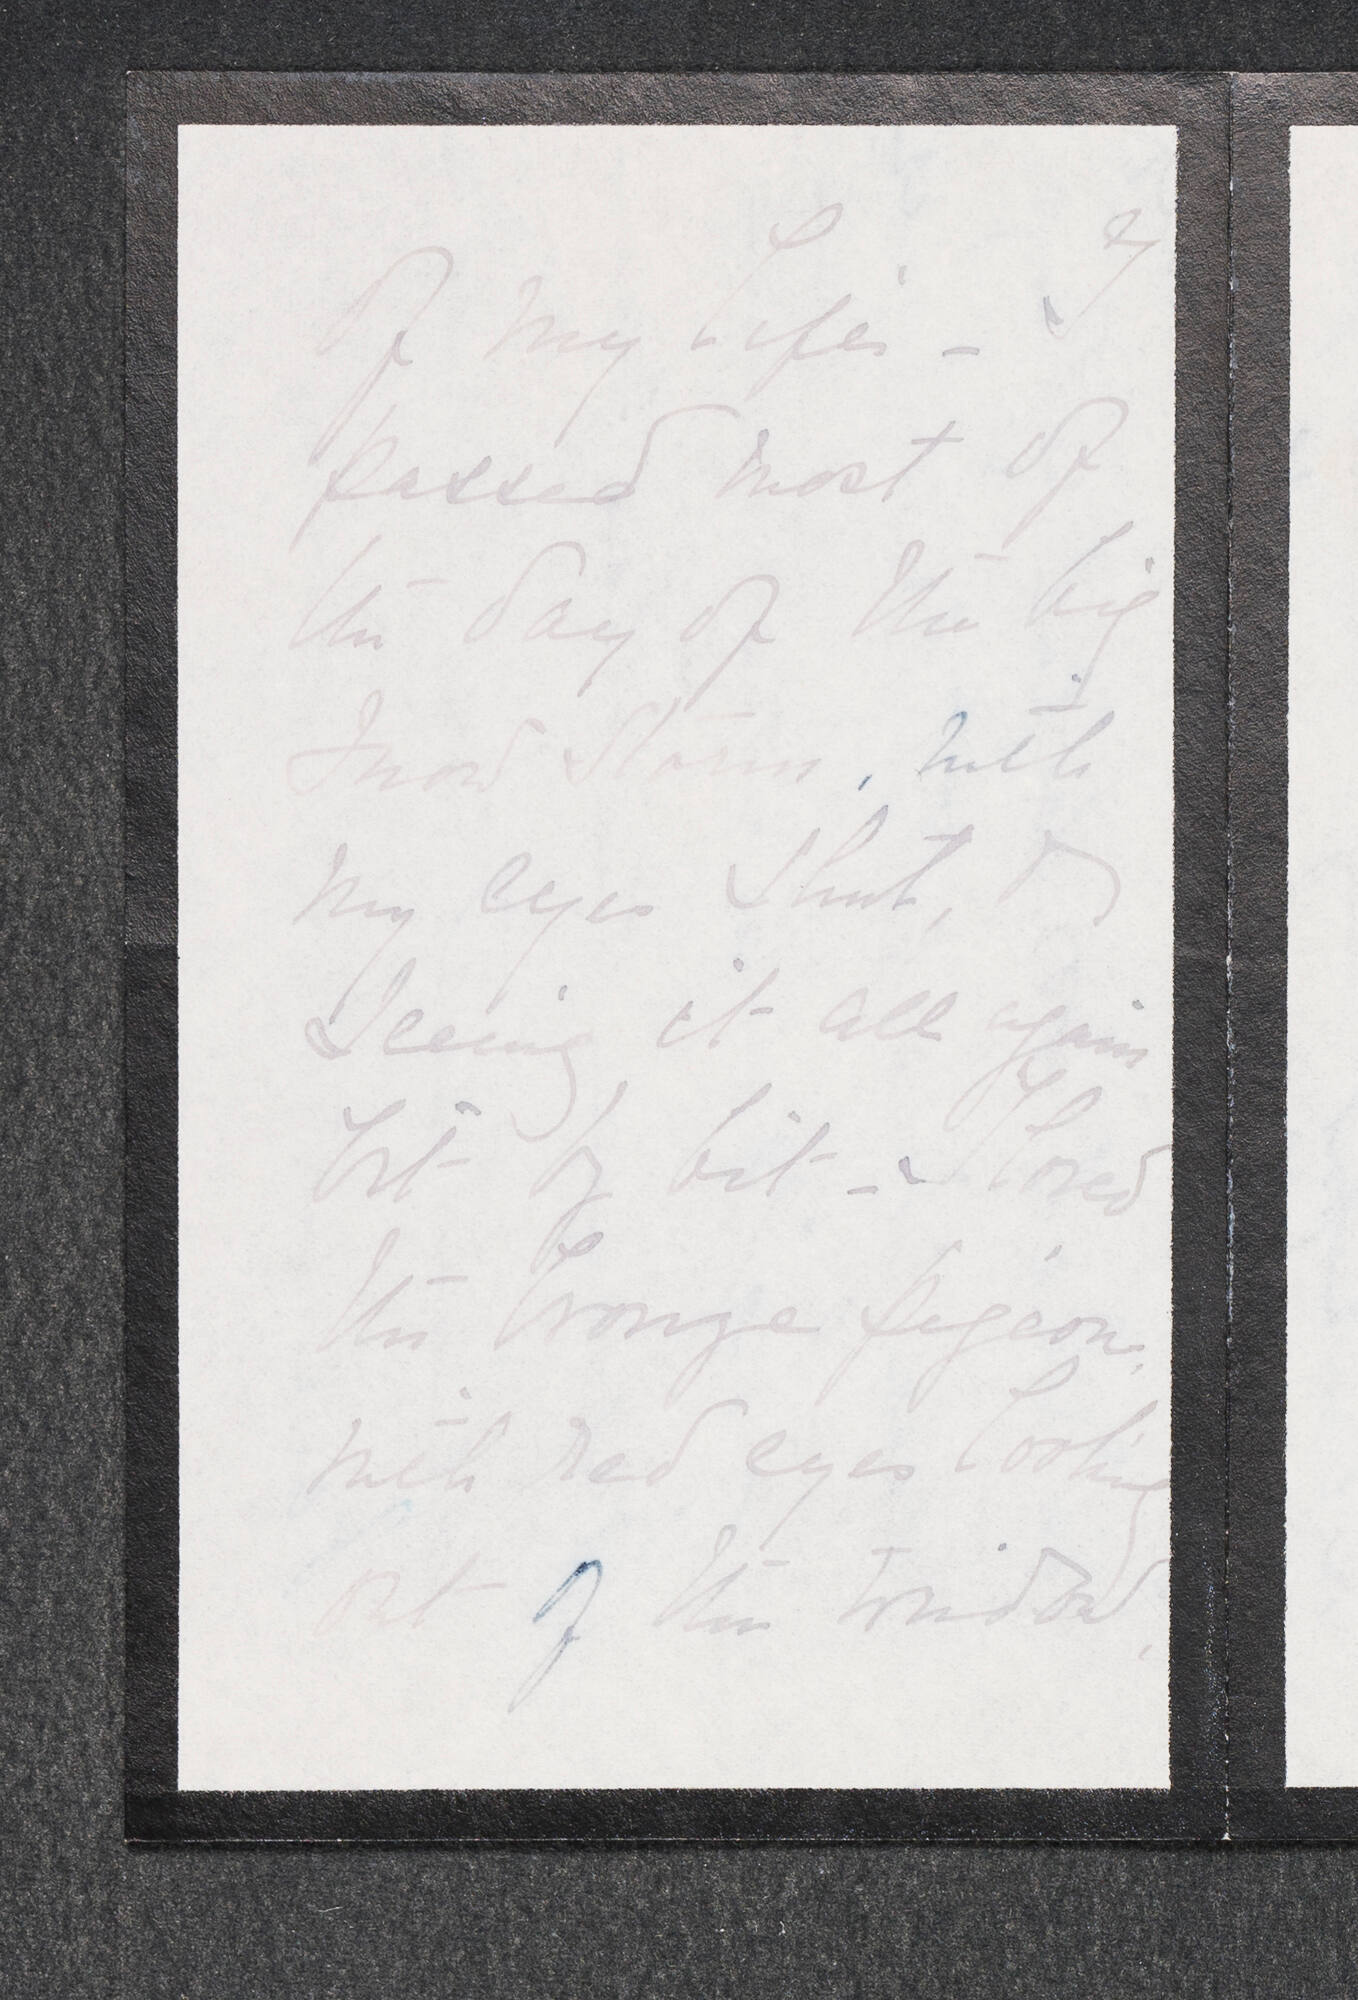 of my life – I
passed most of
the day of the big
Snow Storm, with
my eyes shut, &
Seeing it all again
bit by bit – I loved
the bronze pigeon,
with red eyes looking
out of the window,